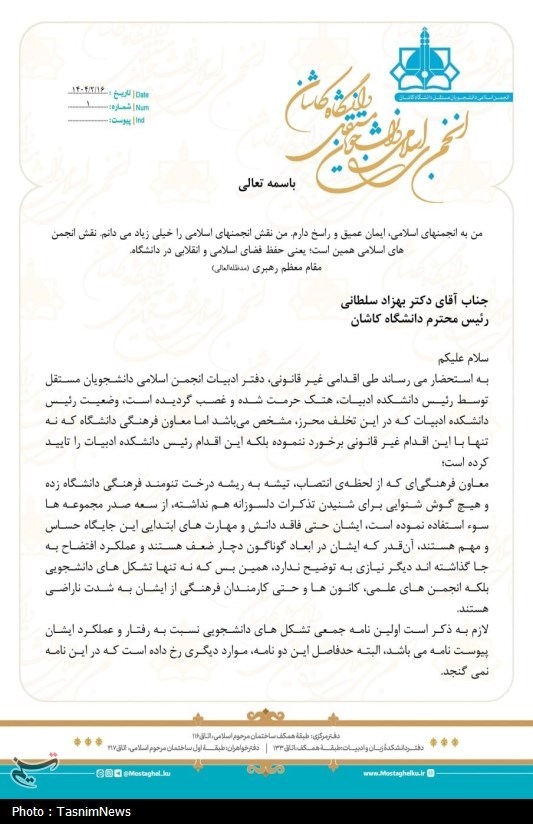 انجمن اسلامی دانشجویان مستقل دانشگاه کاشان
انجمن اسلامی دانشجویان مستقل
دانشگاه کاشان
تاریخ : ۱۴۰۴/۲/۱۶ Date
شماره: ۱ Num
پیوست: Ind
باسمه تعالی
من به انجمنهای اسلامی، ایمان عمیق و راسخ دارم. من نقش انجمنهای اسلامی را خیلی زیاد می دانم. نقش انجمن
های اسلامی همین است؛ یعنی حفظ فضای اسلامی و انقلابی در دانشگاه.
مقام معظم رهبری (مدظله‌العالی)
جناب آقای دکتر بهزاد سلطانی
رئیس محترم دانشگاه کاشان
سلام علیکم
به استحضار می رساند طی اقدامی غیر قانونی، دفتر ادبیات انجمن اسلامی دانشجویان مستقل
توسط رئیس دانشکده ادبیات، هتک حرمت شده و غصب گردیده است، وضعیت رئیس
دانشکده ادبیات که در این تخلف محرز، مشخص می‌باشد اما معاون فرهنگی دانشگاه که نه
تنها با این اقدام غیر قانونی برخورد ننموده بلکه این اقدام رئیس دانشکده ادبیات را تایید
کرده است؛
معاون فرهنگی‌ای که از لحظه‌ی انتصاب، تیشه به ریشه درخت تنومند فرهنگی دانشگاه زده
و هیچ گوش شنوایی برای شنیدن تذکرات دلسوزانه هم نداشته، از سعه صدر مجموعه ها
سوء استفاده نموده است، ایشان حتی فاقد دانش و مهارت های ابتدایی این جایگاه حساس
و مهم هستند، آن‌قدر که ایشان در ابعاد گوناگون دچار ضعف هستند و عملکرد افتضاح به
جا گذاشته اند دیگر نیازی به توضیح ندارد، همین بس که نه تنها تشکل های دانشجویی
بلکه انجمن های علمی، کانون ها و حتی کارمندان فرهنگی از ایشان به شدت ناراضی
هستند.
لازم به ذکر است اولین نامه جمعی تشکل های دانشجویی نسبت به رفتار و عملکرد ایشان
پیوست نامه می باشد، البته حدفاصل این دو نامه، موارد دیگری رخ داده است که در این نامه
نمی گنجد.
دفتر مرکزی: طبقهٔ همکف ساختمان مرحوم اسلامی، اتاق ۱۱۶
دفتر دانشکدهٔ زبان و ادبیات: طبقهٔ همکف، اتاق ۱۳۳ | دفتر خواهران: طبقهٔ اول ساختمان مرحوم اسلامی، اتاق ۲۱۷
@Mostaghel.ku
www.Mostaghelku.ir
تسنیم
Photo : TasnimNews